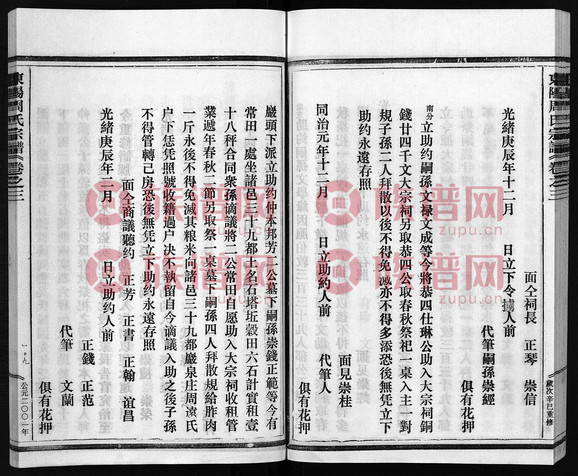 東陽周氏宗譜
卷之三
歲次辛巳重修
面仝祠長 正琴 崇信
光緒庚辰年十二月 日立下令據人前
代筆嗣孫崇經
俱有花押
南分立助約嗣孫文祿文成等今將恭四仕琳公助入大宗祠銅
錢廿四千文大宗祠另取恭四公取春秋祭祀一桌入主一對
規子孫二人拜散以後不得免滅亦不得多添恐後無凭立下
助約永遠存照
見面崇桂
同治元年十二月 日立助約人前
代筆人
俱有花押
巖頭下派立助約仲本邦芳二公墓下嗣孫崇錢正範等今有
常田一處坐諸邑三十九都土名白塔坵穀田六石計實租壹
十八秤合同衆孫謫議將二公常田自愿助入大宗祠收租管
業遞年春秋二節另取祭一桌墓下嗣孫四人拜散規給胙肉
一斤永後不得免滅其粮米向諸邑三十九都巖泉庄周遠氏
户下恁凭照號收籍過户决不執留自今謫議入助之後子孫
不得管轉己房恐後無凭立下助約永遠存照
光緒庚辰年二月 日立助約人前
面仝商議聽約 正芳 正書 正翰 誼昌
正錢 正范
代筆 文蘭
俱有花押
東陽周氏宗譜
卷之三
公元二〇〇一年
族譜网
www.zupu.cn